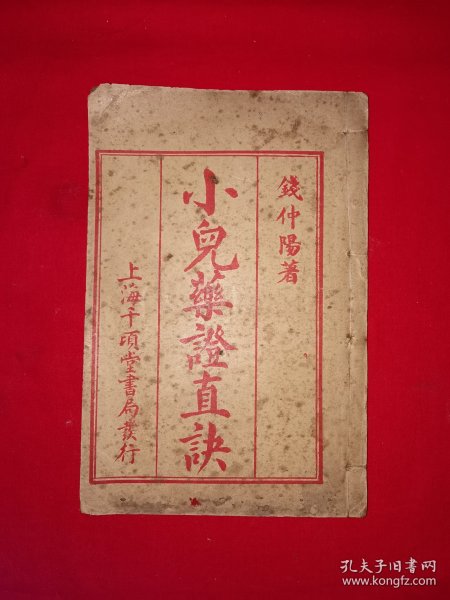 錢仲陽著
小兒藥證直訣
上海千頃堂書局發行
孔夫子旧书网
www.kongfz.com